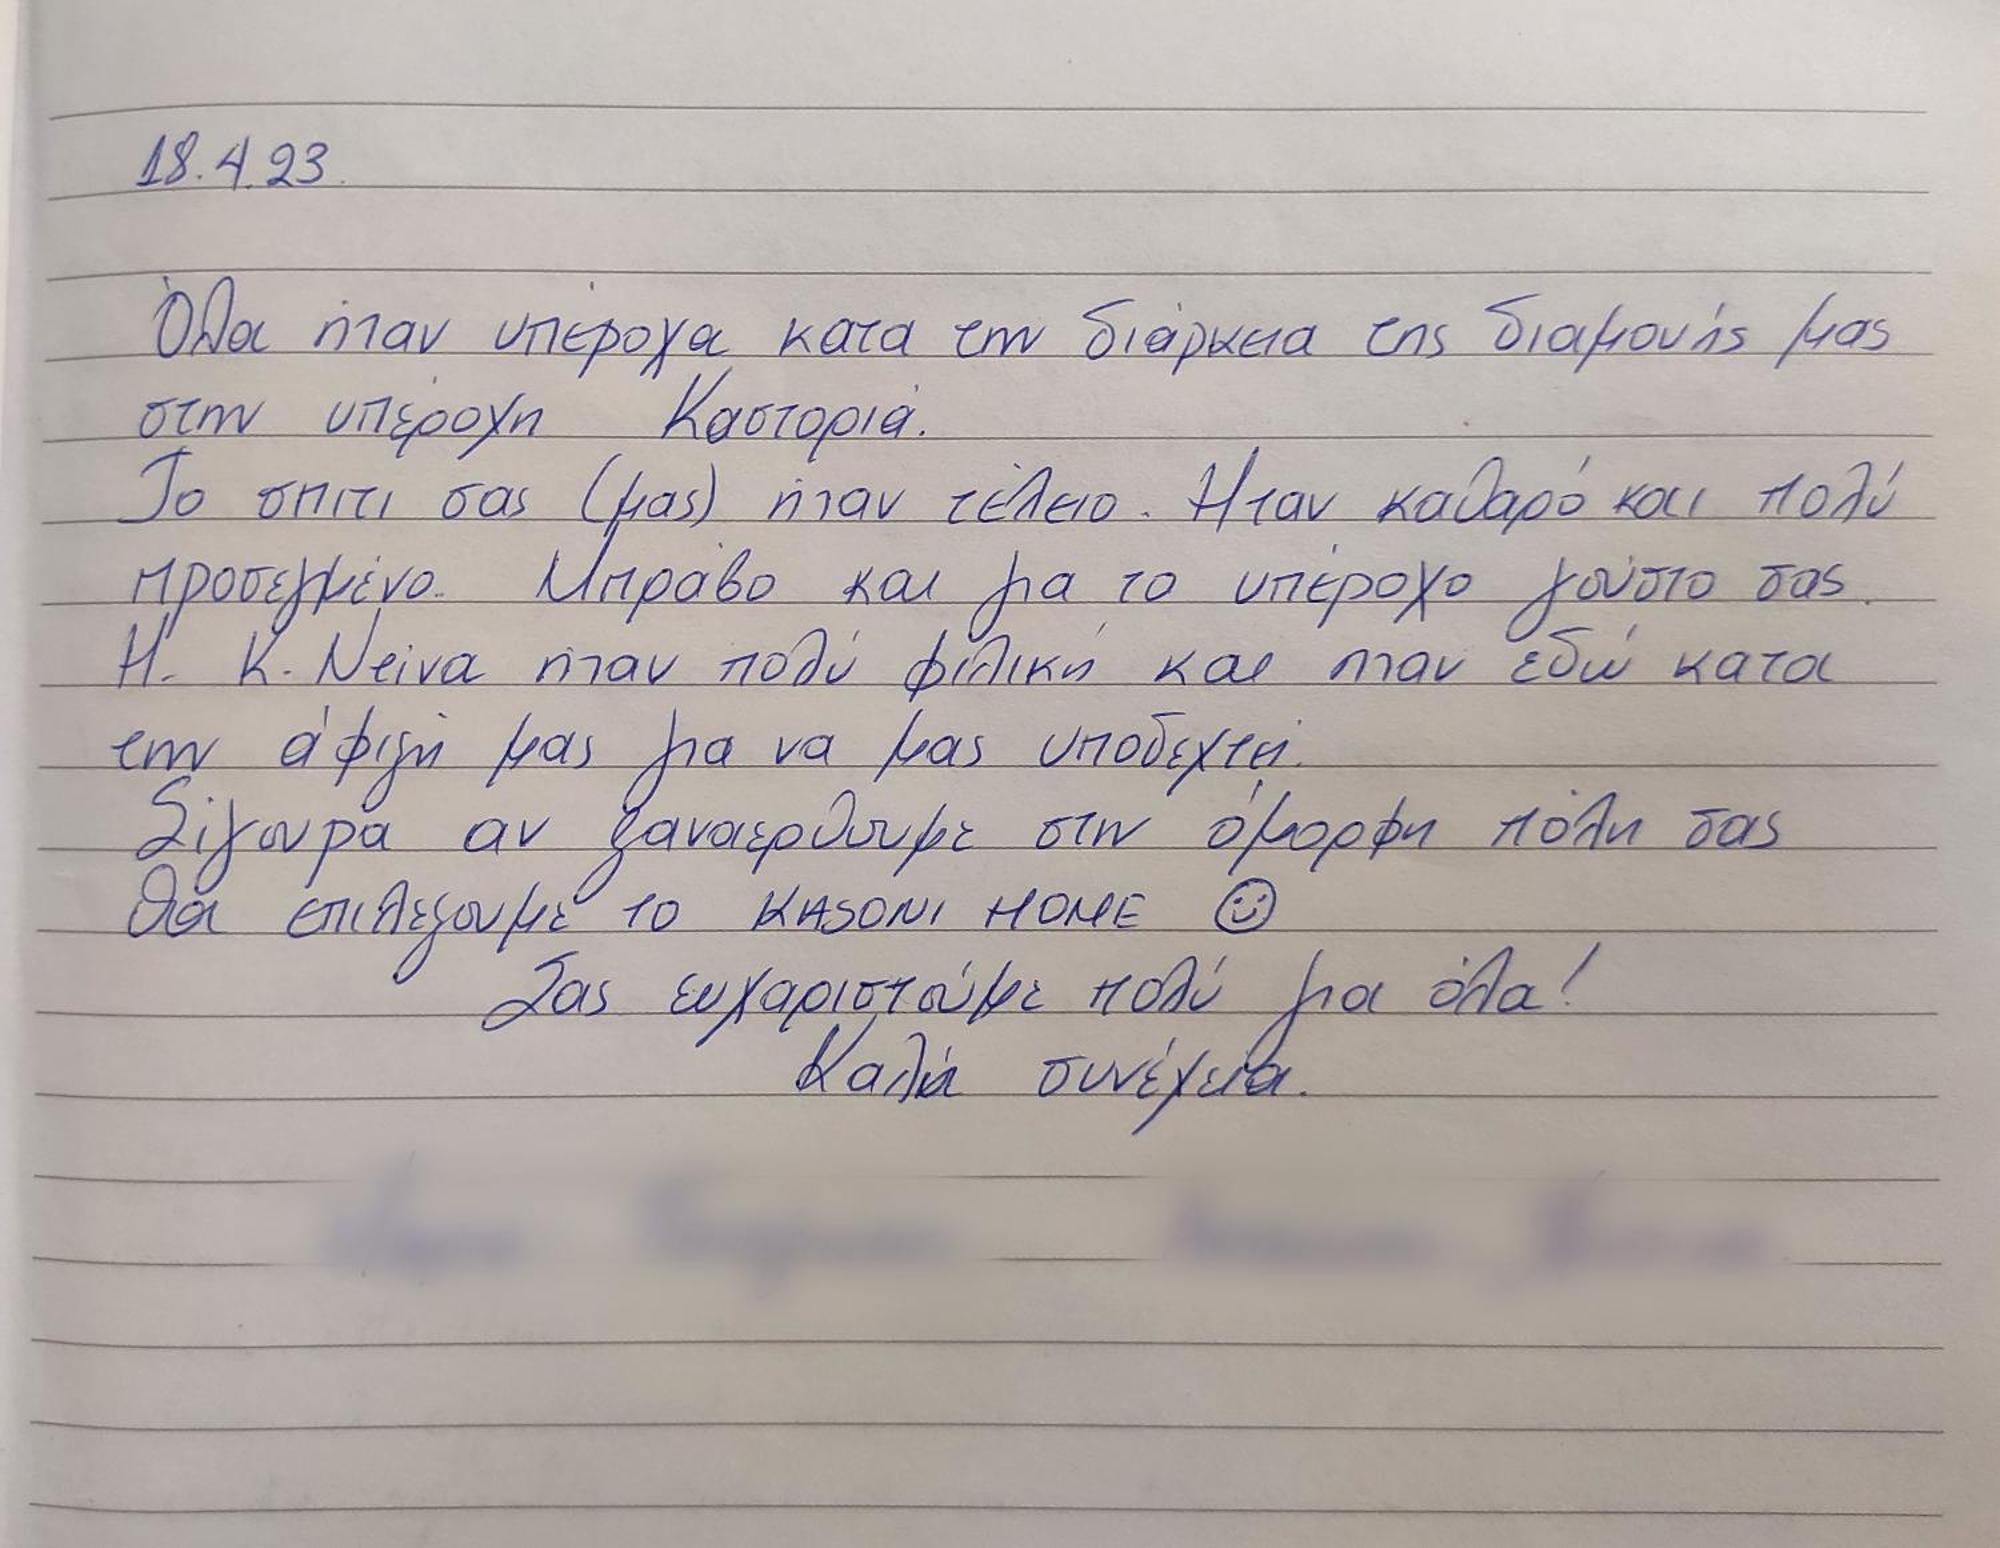 18.4.23.
Όλα ήταν υπέροχα κατα την διάρκεια της διαμονής μας
στην υπέροχη Καστοριά.
Το σπιτι σας (μας) ήταν τέλειο. Ηταν καθαρό και πολύ
προσεγμένο. Μπράβο και για το υπέροχο γούστο σας.
Η. Κ. Νείνα ήταν πολύ φιλική και ηταν εδώ κατα
την άφιξή μας για να μας υποδεχτεί.
Σίγουρα αν ξαναερθουμε στην όμορφη πόλη σας
θα επιλέξουμε το KASONI HOME ☺
Σας ευχαριστούμε πολύ για όλα!
Καλή συνέχεια.